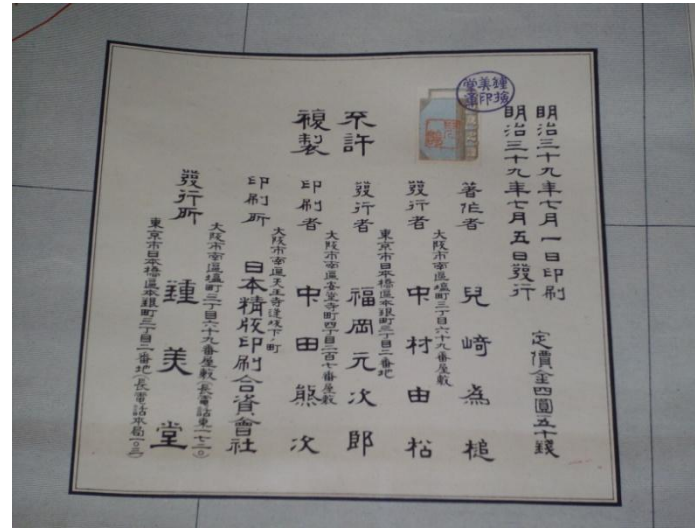 明治三十九年七月一日印刷
明治三十九年七月五日發行
定價金四圓五十錢
著作者 兒﨑為槌
大阪市南區塩町三丁目六十九番屋敷
發行者 中村由松
東京市日本橋區本銀町三丁目二番地
發行者 福岡元次郎
大阪市南區安堂寺町四丁目二百七番屋敷
印刷者 中田熊次
大阪市南區天王寺逢坂下ノ町
印刷所 日本精版印刷合資會社
不許
複製
大阪市南區塩町三丁目六十九番屋敷(長電話東一七二〇)
發行所 鍾美堂
東京市日本橋區本銀町三丁目二番地(長電話本局一〇三)